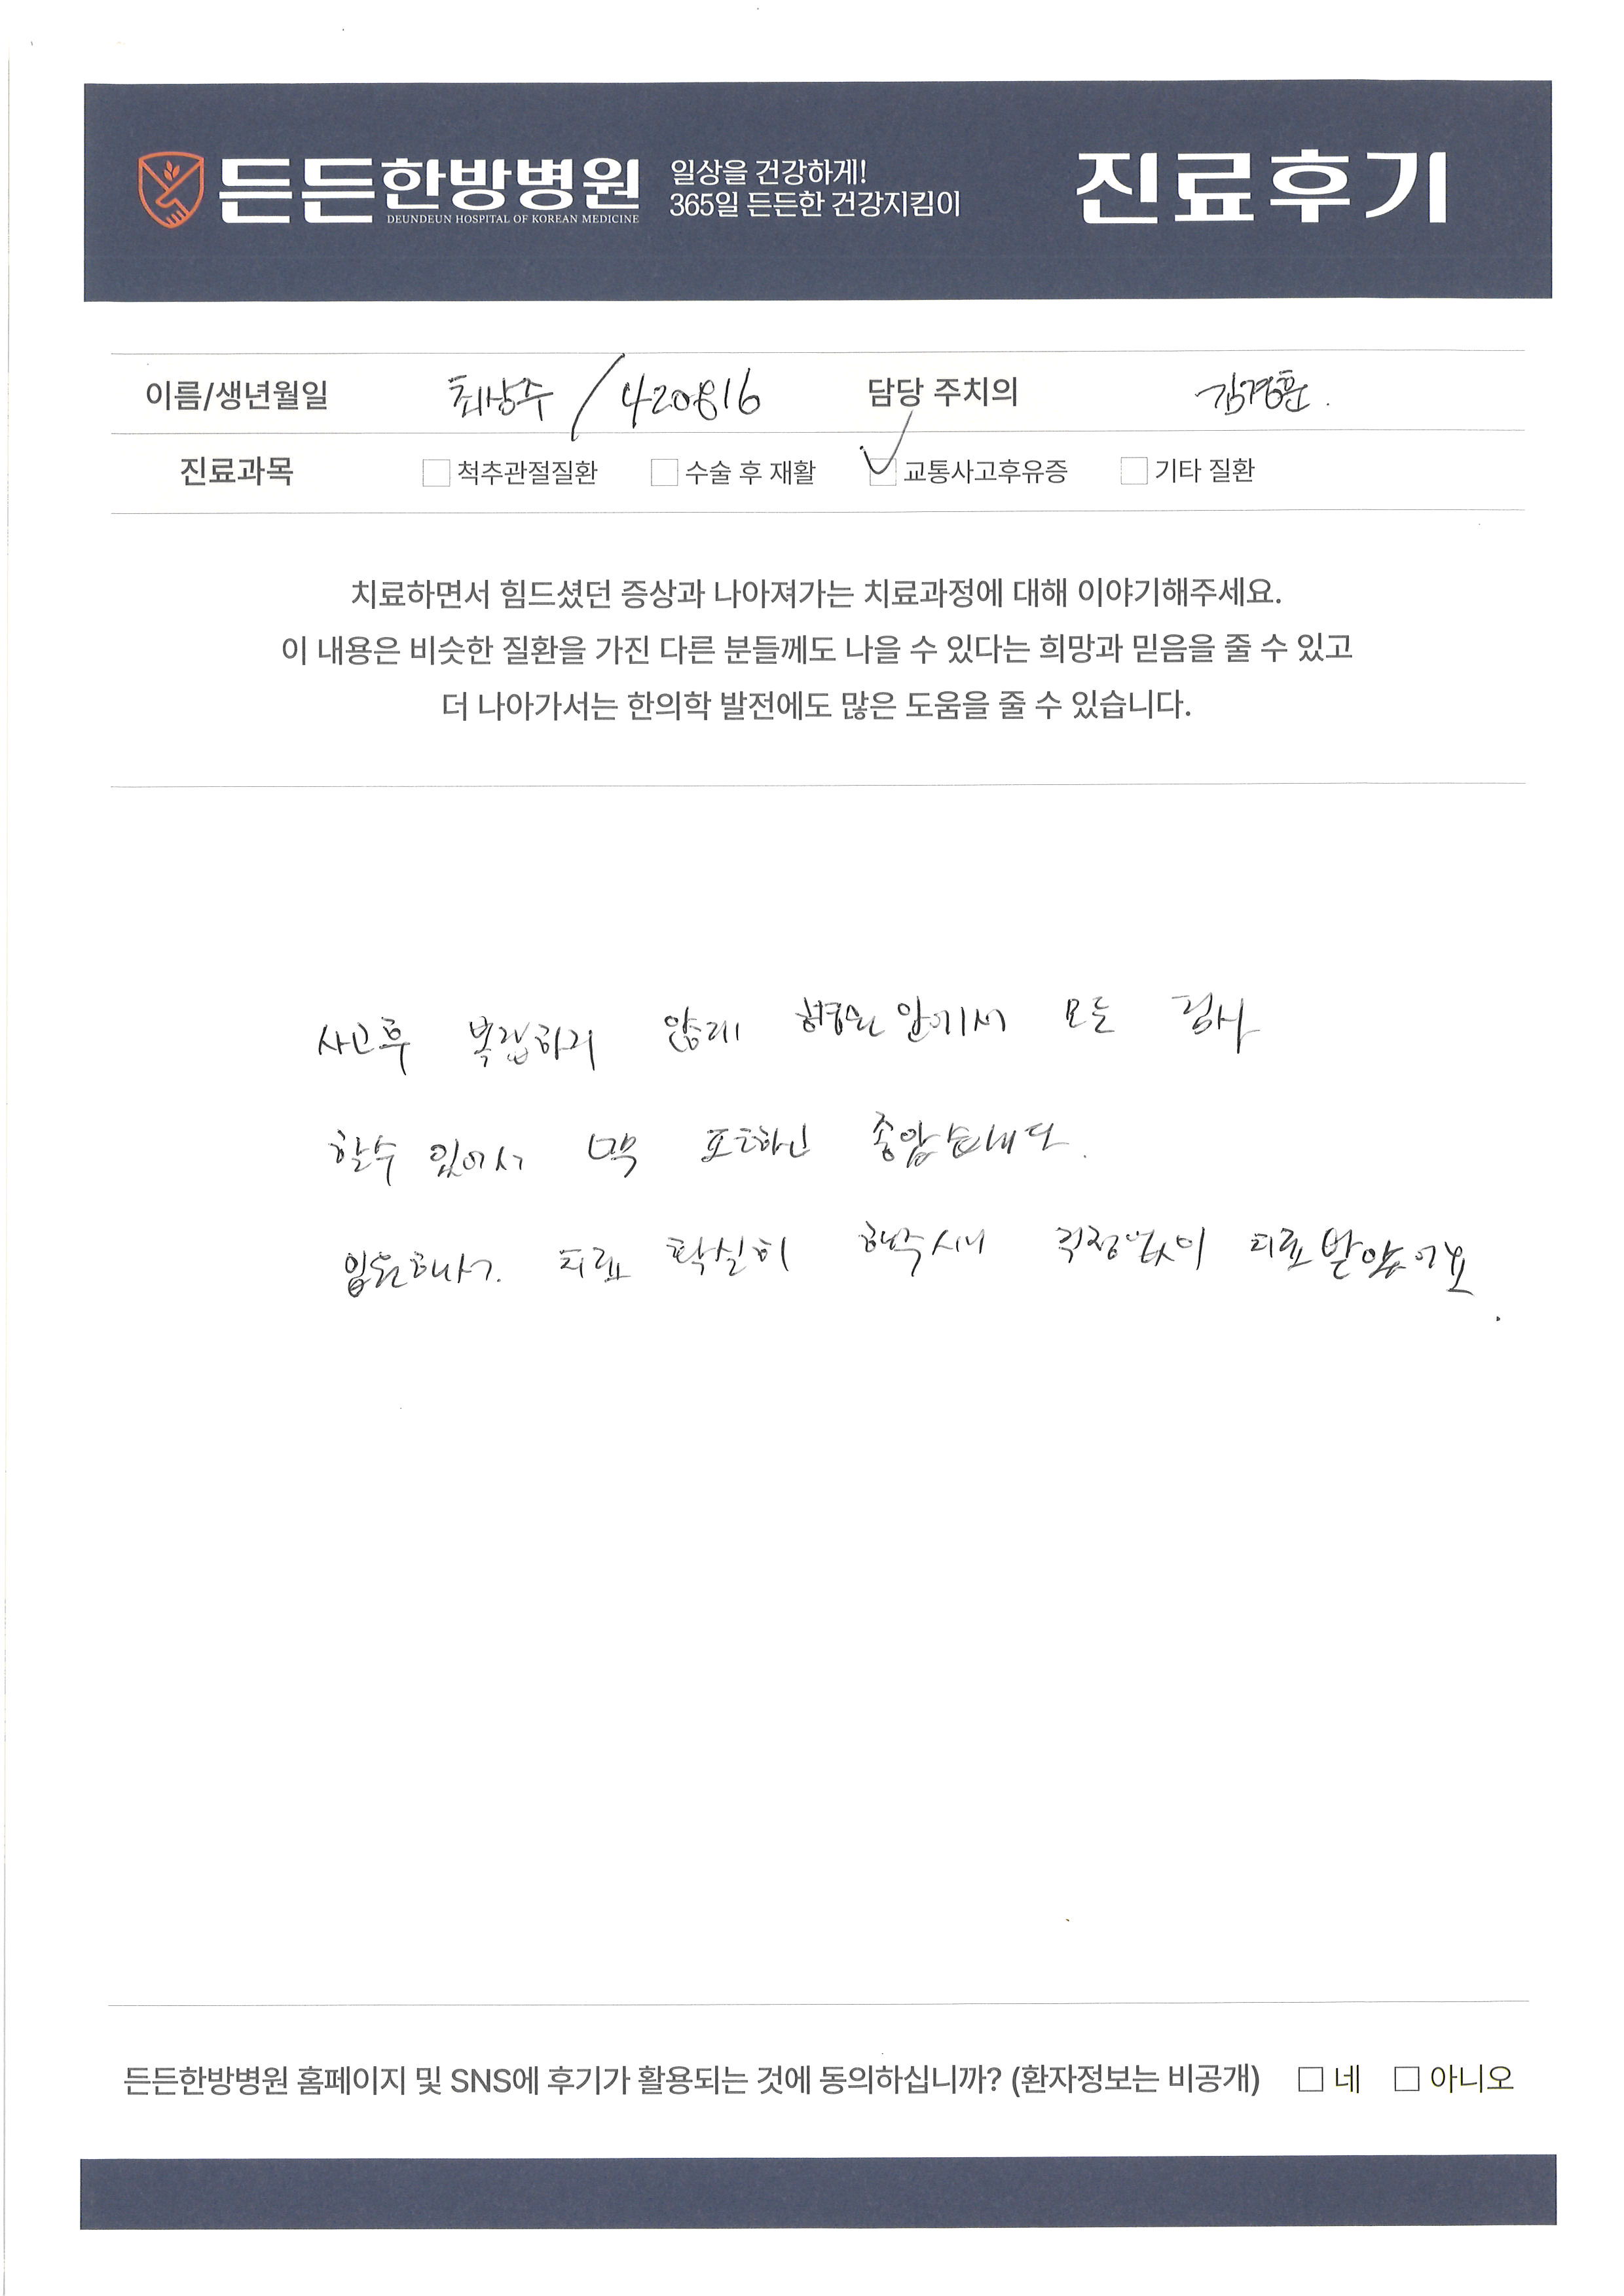 든든한방병원
DEUNDEUN HOSPITAL OF KOREAN MEDICINE
일상을 건강하게!
365일 든든한 건강지킴이
진료후기
이름/생년월일 최상수 / 420816 담당 주치의 김경훈.
진료과목 척추관절질환 수술 후 재활 교통사고후유증 기타 질환
치료하면서 힘드셨던 증상과 나아져가는 치료과정에 대해 이야기해주세요.
이 내용은 비슷한 질환을 가진 다른 분들께도 나을 수 있다는 희망과 믿음을 줄 수 있고
더 나아가서는 한의학 발전에도 많은 도움을 줄 수 있습니다.
사고후 복잡하지 않게 병원 안에서 모든 검사
할수 있어서 너무 좋았습니다.
입원해서. 치료 확실히 해주시니 걱정없이 치료받았어요.
든든한방병원 홈페이지 및 SNS에 후기가 활용되는 것에 동의하십니까? (환자정보는 비공개) 네 아니오